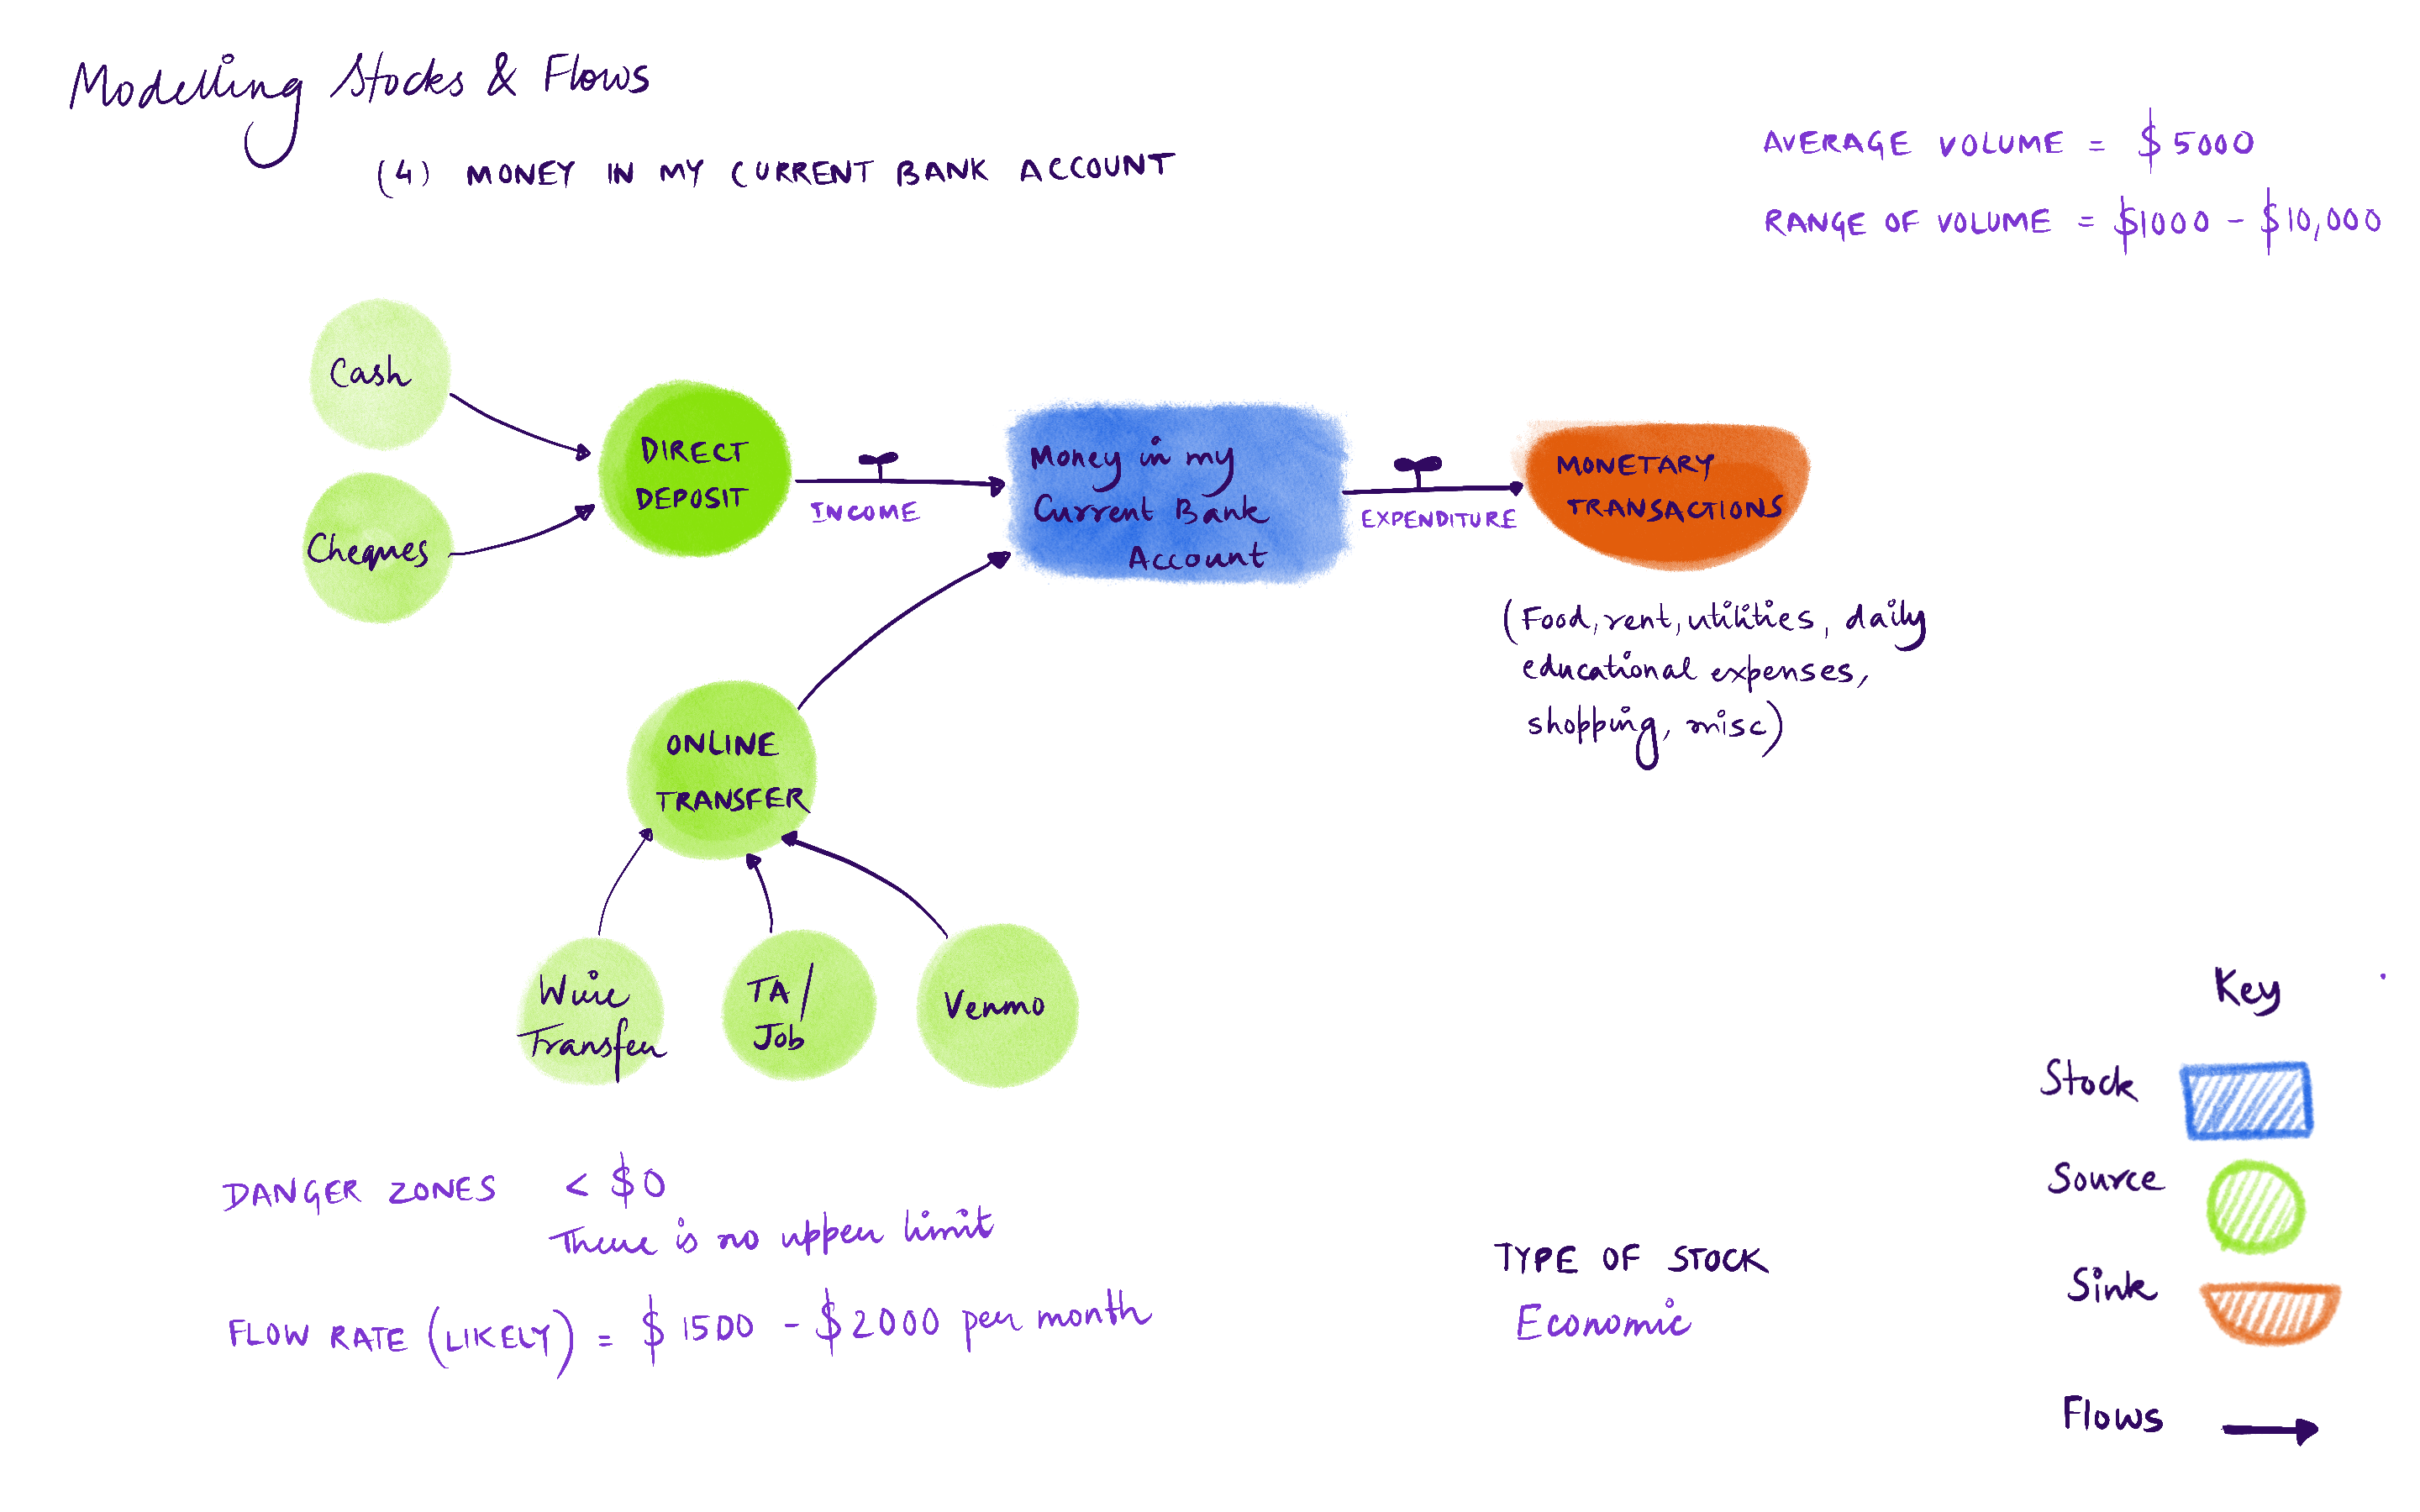 Modelling Stocks & Flows
(4) MONEY IN MY CURRENT BANK ACCOUNT
AVERAGE VOLUME = $5000
RANGE OF VOLUME = $1000 - $10,000
Cash
Cheques
DIRECT
DEPOSIT
INCOME
Money in my
Current Bank
Account
EXPENDITURE
MONETARY
TRANSACTIONS
(Food, rent, utilities, daily
educational expenses,
shopping, misc)
ONLINE
TRANSFER
Wire
Transfer
TA/
Job
Venmo
DANGER ZONES < $0
There is no upper limit
FLOW RATE (LIKELY) = $1500 - $2000 per month
TYPE OF STOCK
Economic
Key
Stock
Source
Sink
Flows